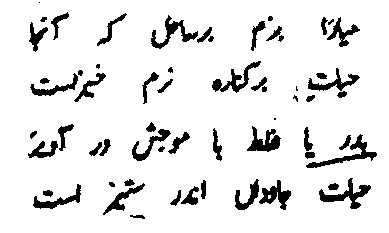 میارا بزم برساحل کہ آنجا
حیات برکنارہ نرم خیزاست
بدر یا غلط با موجش در آویز
حیات جاوداں اندر ستیز است